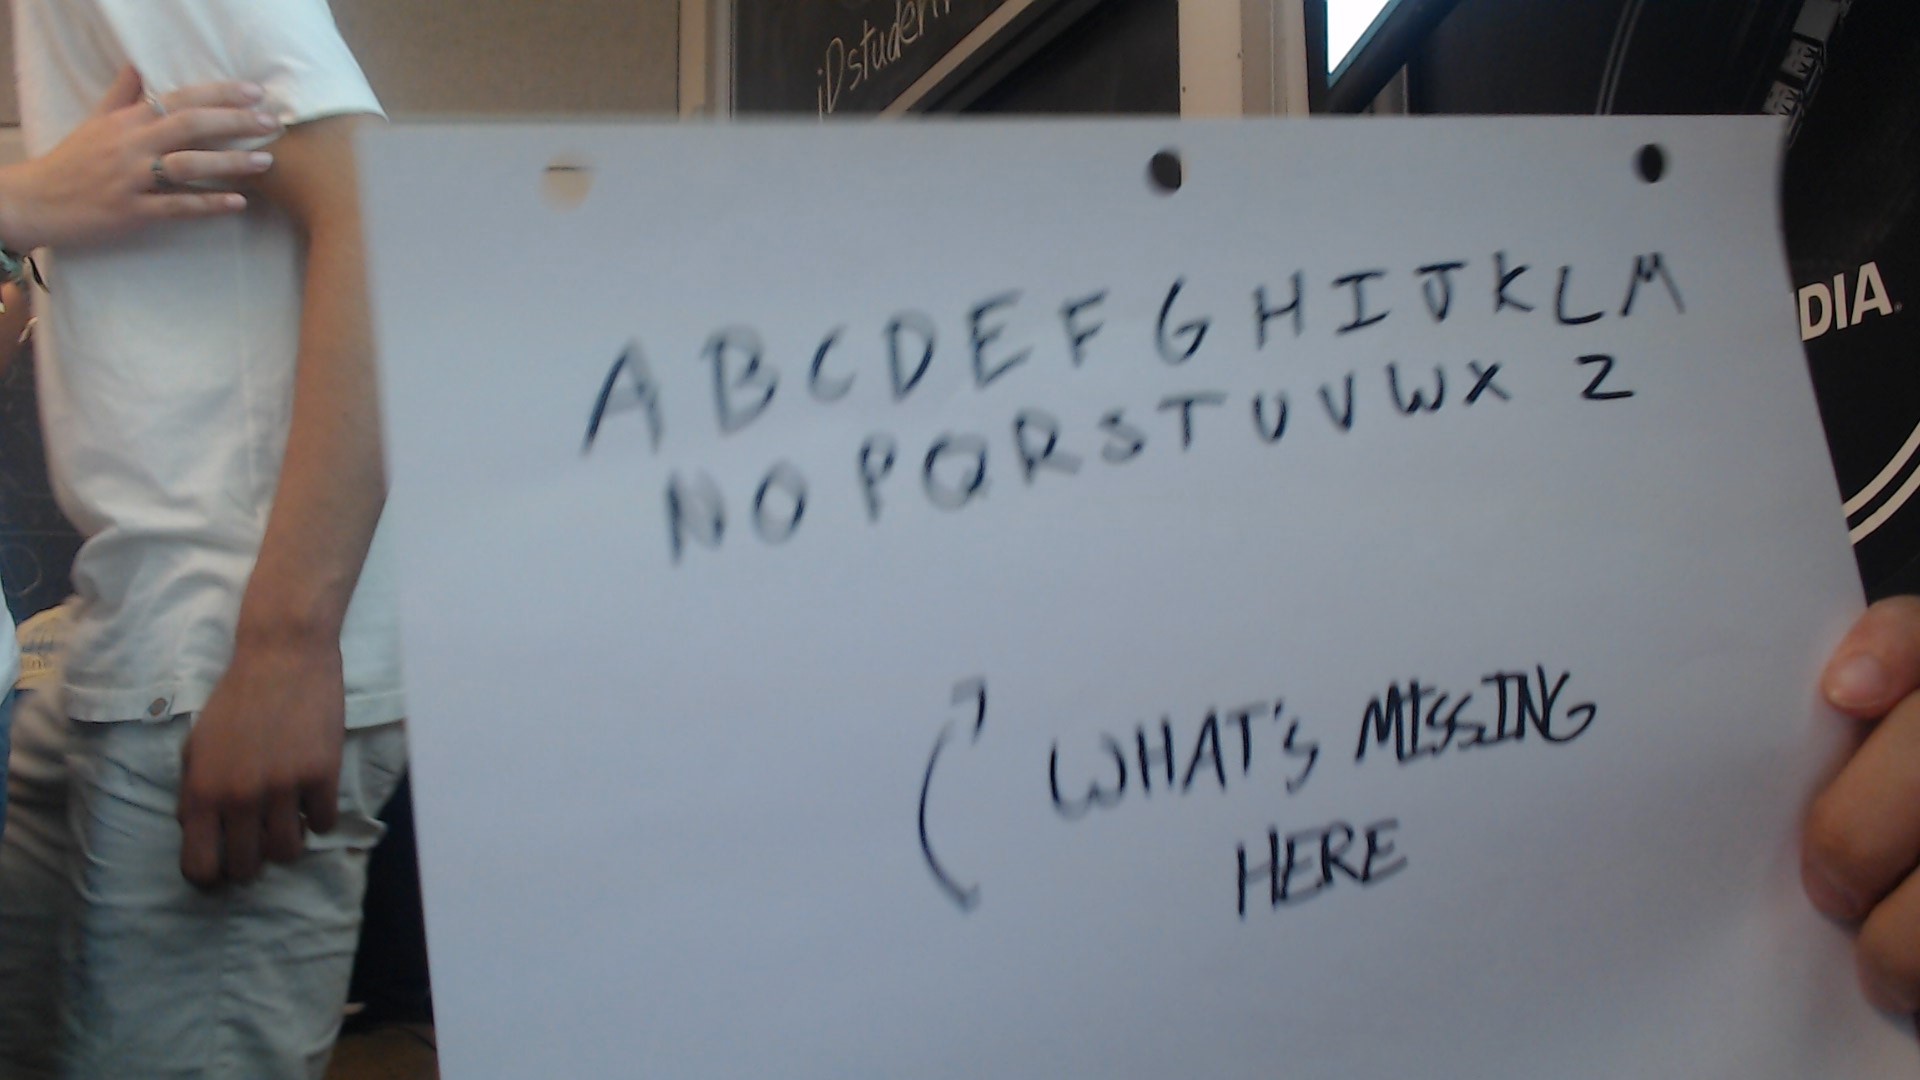 iDstuden
ABCDEFGHIJKLM
NOPQRSTUVWX Z
WHAT'S MISSING
HERE
DIA